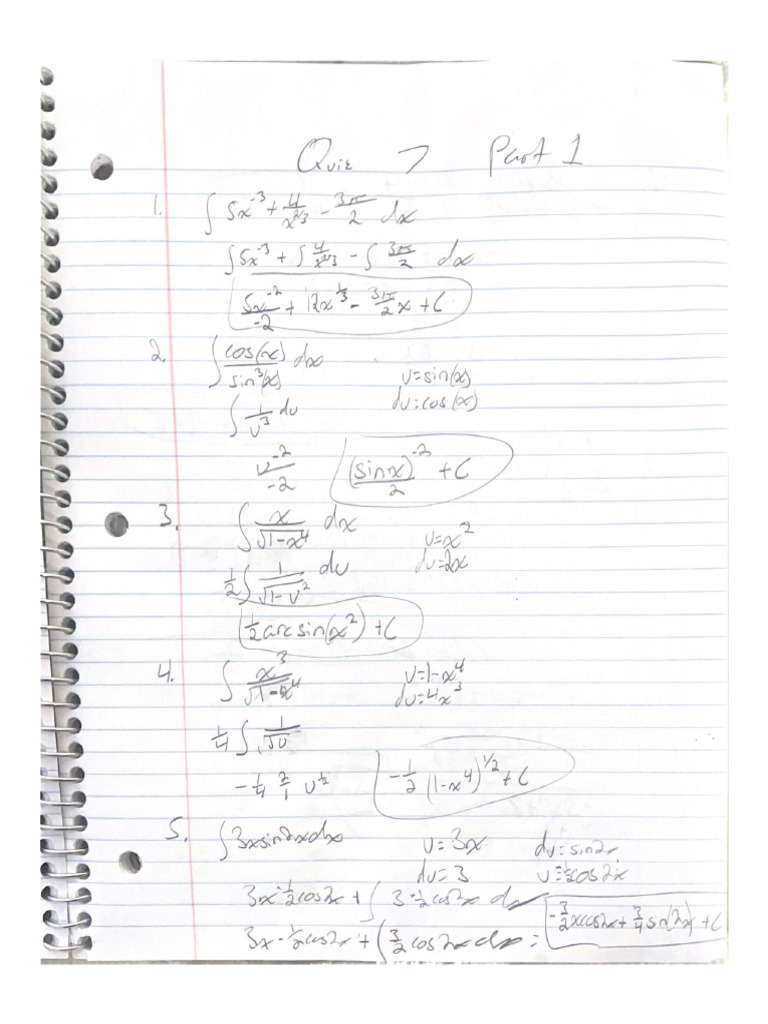 Quiz 7 Part 1
1. ∫ 5x^-3 + 4/x^2/3 - 3π/2 dx
∫ 5x^-3 + ∫ 4/x^2/3 - ∫ 3π/2 dx
5x^-2/-2 + 12x^1/3 - 3π/2 x + C
2. ∫ cos(x)/sin^3(x) dx u=sin(x)
du=cos(x)
∫ 1/u^3 du
u^-2/-2 (sinx)^-2/2 + C
3. ∫ x/√1-x^4 dx u=x^2
1/2 ∫ 1/√1-u^2 du du=2x
1/2 arcsin(x^2) + C
4. ∫ x^3/√1-x^4 u=1-x^4
du=4x^3
1/4 ∫ 1/√u
-1/4 2/1 u^1/2 -1/2 (1-x^4)^1/2 + C
5. ∫ 3xsin2xdx u=3x dv=sin2x
du=3 v=-1/2cos2x
3x·-1/2cos2x + ∫ 3·-1/2cos2x dx
3x·-1/2cos2x + ∫ 3/2 cos2x dx = -3/2xcos2x + 3/4 sin(2x) + C